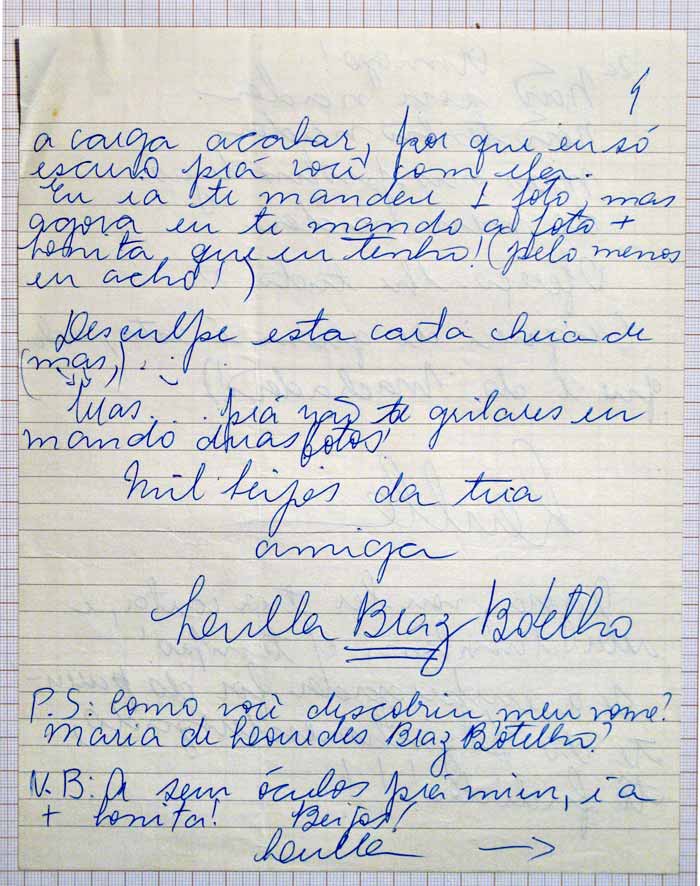 a carga acabar, por que eu só
escrevo prá você com ela.
Eu ia te mandar 1 foto, mas
agora eu te mando a foto +
bonita que eu tenho! (pelo menos
eu acho!)
Desculpe esta carta cheia de
(mas,)
Mas... prá não te grilares eu
mando duas fotos!
Mil beijos da tua
amiga
Braz Botelho
P.S: Como você descobriu meu nome?
Maria de Braz Botelho?
N.B: A sem óculos prá mim, é a
+ bonita! Beijos!